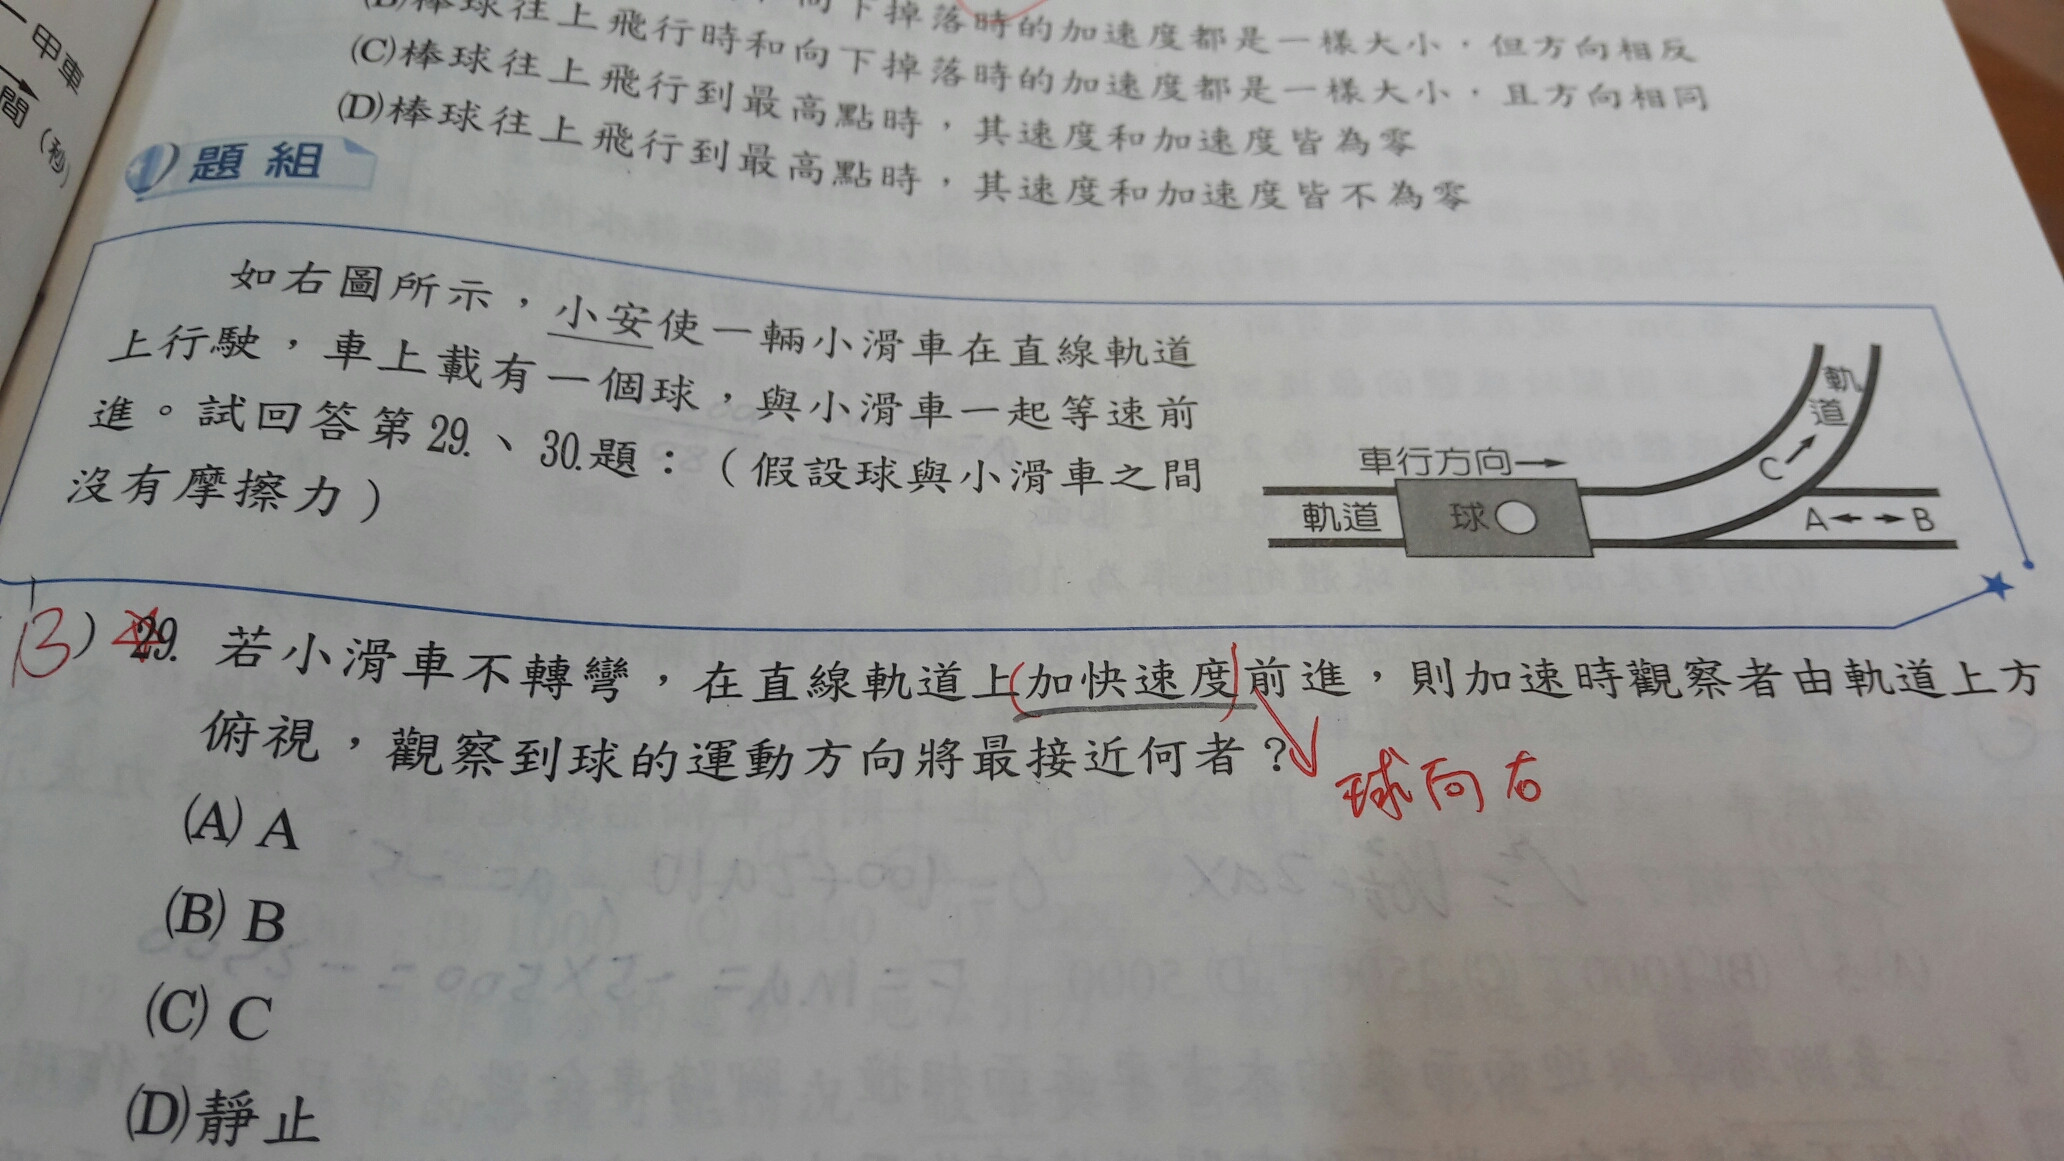 甲車
間(秒)
棒球往上飛行時和向下掉落時的加速度都是一樣大小,但方向相反
(C)棒球往上飛行到最高點時,其速度和加速度皆為零
(D)棒球往上飛行到最高點時,其速度和加速度皆不為零
題組
如右圖所示,小安使一輛小滑車在直線軌道
上行駛,車上載有一個球,與小滑車一起等速前
進。試回答第29.、30.題:(假設球與小滑車之間
沒有摩擦力)
車行方向→
軌道
球
軌道
C
A←→B
B) 29. 若小滑車不轉彎,在直線軌道上(加快速度)前進,則加速時觀察者由軌道上方
俯視,觀察到球的運動方向將最接近何者?
球向右
(A) A
(B) B
(C) C
(D)靜止